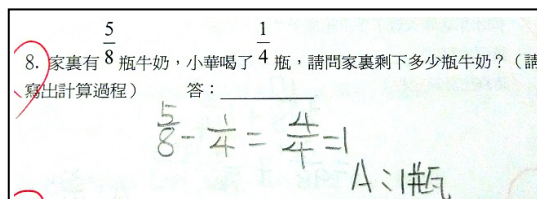 8. 家裏有 5/8 瓶牛奶，小華喝了 1/4 瓶，請問家裏剩下多少瓶牛奶？（請
寫出計算過程） 答：________
5/8 - 1/4 = 4/4 = 1
A：1瓶